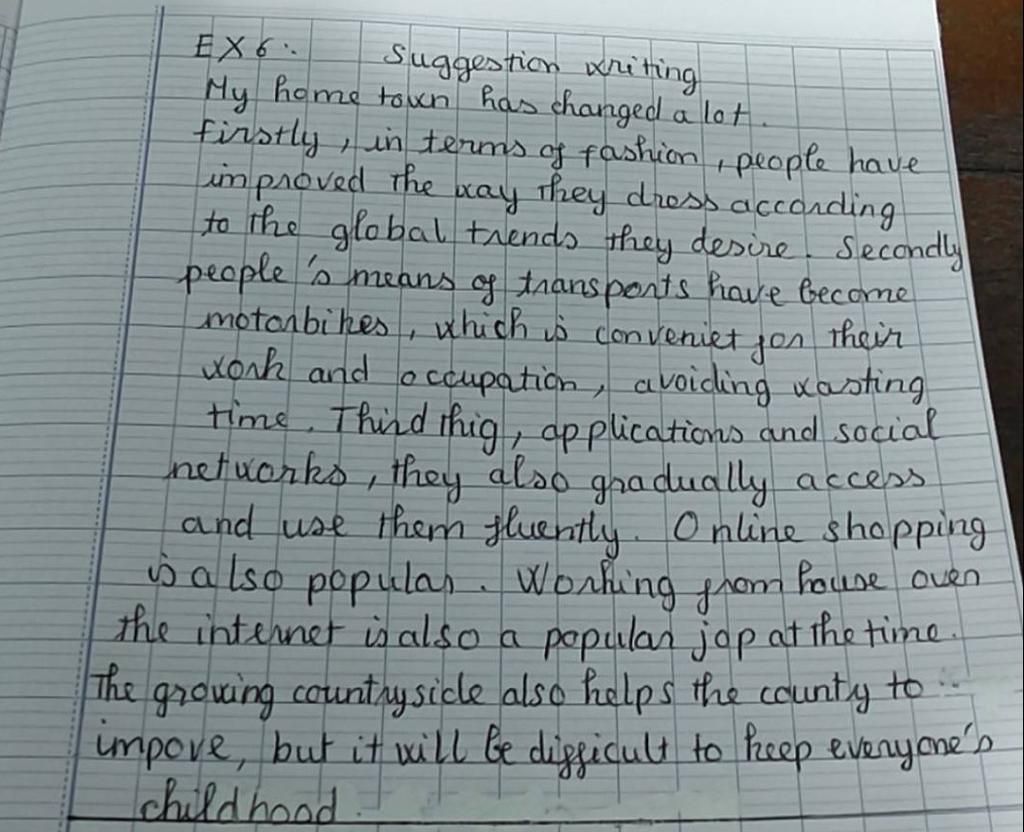 EX 6:. Suggestion writing
My home town has changed a lot.
firstly, in terms of fashion, people have
improved the way they dress according
to the global trends they desire. Secondly
people's means of transports have become
motorbikes, which is conveniet for their
work and occupation, avoiding wasting
time. Third thig, applications and social
networks, they also gradually access
and use them fluently. Online shopping
is also popular. Working from house over
the internet is also a popular jop at the time.
The growing countryside also helps the county to
impove, but it will be difficult to keep everyone's
childhood.